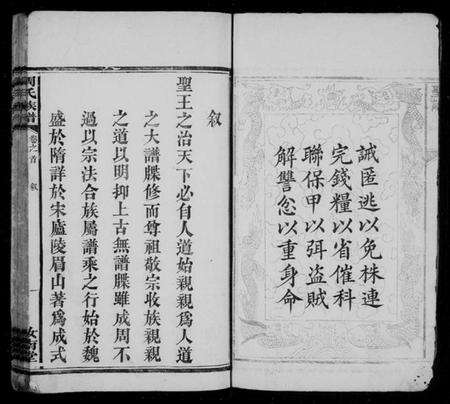 誡匿逃以免株連
完錢糧以省催科
聯保甲以弭盜賊
解讐忿以重身命
敘
聖王之治天下必自人道始親親為人道
之大譜牒修而尊祖敬宗收族親親
之道以明抑上古無譜牒雖成周不
過以宗法合族屬譜乘之行始於魏
盛於隋詳於宋廬陵眉山著為成式
周氏族譜
卷之首
敘
一
汝南堂